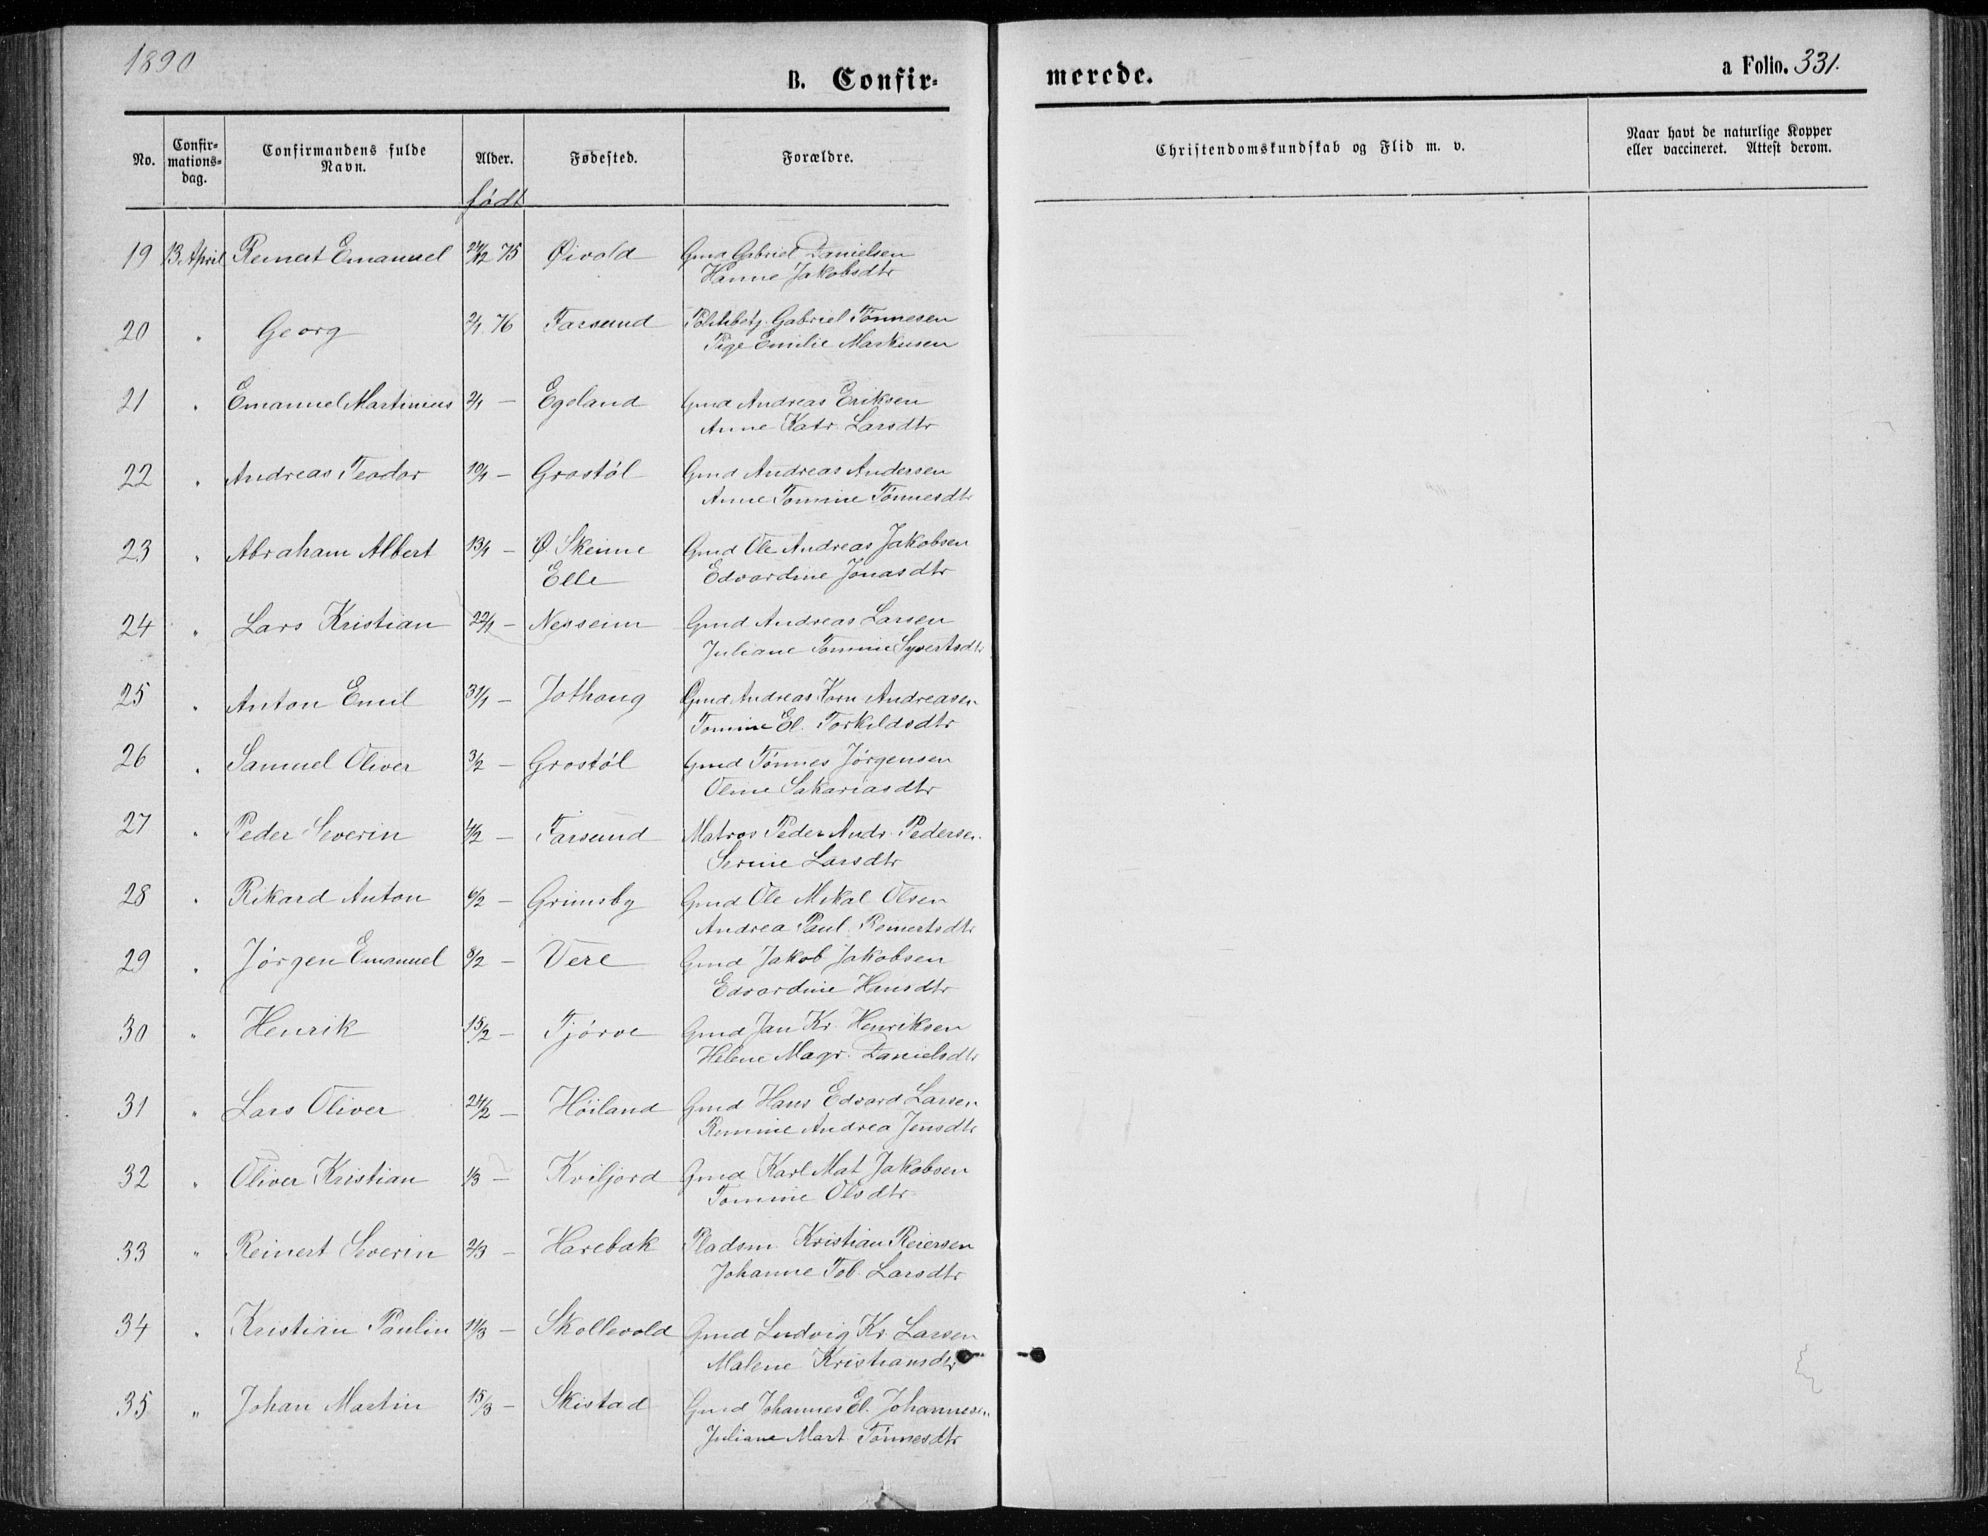 1890
B. Confir-
merede.
a Folio. 331.
No.
Confir-
mations-
dag.
Confirmandens fulde
Navn.
Alder.
født
Fødested.
Forældre.
Christendomskundskab og Flid m. v.
Naar havt de naturlige Kopper
eller vaccineret. Attest derom.
19 13 April Reinert Emanuel 24/12 75 Øivold Gmd Gabriel Danielsen
Hanne Jakobsdtr
20 " Georg 2/1 76 Farsund Politibetj. Gabriel Tønnesen
Pige Emilie Markusen
21 " Emanuel Martinius 2/1 — Egeland Gmd Andreas Eriksen
Anne Katr. Larsdtr
22 " Andreas Teodor 10/1 — Grostøl Gmd Andreas Andersen
Anne Tomine Tønnesdtr
23 " Abraham Albert 13/1 — Ø Skeime Gmd Ole Andreas Jakobsen
Elle Edvardine Jonasdtr
24 " Lars Kristian 22/1 — Nesseim Gmd Andreas Larsen
Juliane Tomine Syvertsdtr
25 " Anton Emil 31/1 — Jothaug Gmd Andreas Korn Andreasen
Tomine El. Torkildsdtr
26 " Samuel Oliver 3/2 — Grostøl Gmd Tønnes Jørgensen
Oline Sakariasdtr
27 " Peder Severin 4/2 — Farsund Matros Peder Andr. Pedersen
Serine Larsdtr
28 " Rikard Anton 6/2 — Grimsby Gmd Ole Mikal Olsen
Andrea Paul. Reinertsdtr
29 " Jørgen Emanuel 8/2 — Vere Gmd Jakob Jakobsen
Edvardine Hansdtr
30 " Henrik 15/2 — Tjørve Gmd Jan Kr. Henriksen
Helene Magr. Danielsdtr
31 " Lars Oliver 24/2 — Høiland Gmd Hans Edvard Larsen
Remine Andrea Jensdtr
32 " Oliver Kristian 1/3 — Kviljord Gmd Karl Mat Jakobsen
Tomine Olsdtr
33 " Reinert Severin 2/3 — Harebak Pladsm Kristian Reiersen
Johanne Tob. Larsdtr
34 " Kristian Paulin 11/3 — Skollevold Gmd Ludvig Kr. Larsen
Malene Kristiansdtr
35 " Johan Martin 15/3 — Skistad Gmd Johannes El. Johannesen
Juliane Mart. Tønnesdtr